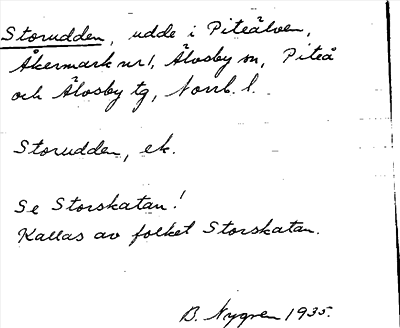 Storudden, udde i Piteälven,
Åkermark nr 1, Älvsby sn, Piteå
och Älvsby tg, Norrb. l.
Storudden, ek.
Se Storskatan!
Kallas av folket Storskatan.
B. Nygren 1935.